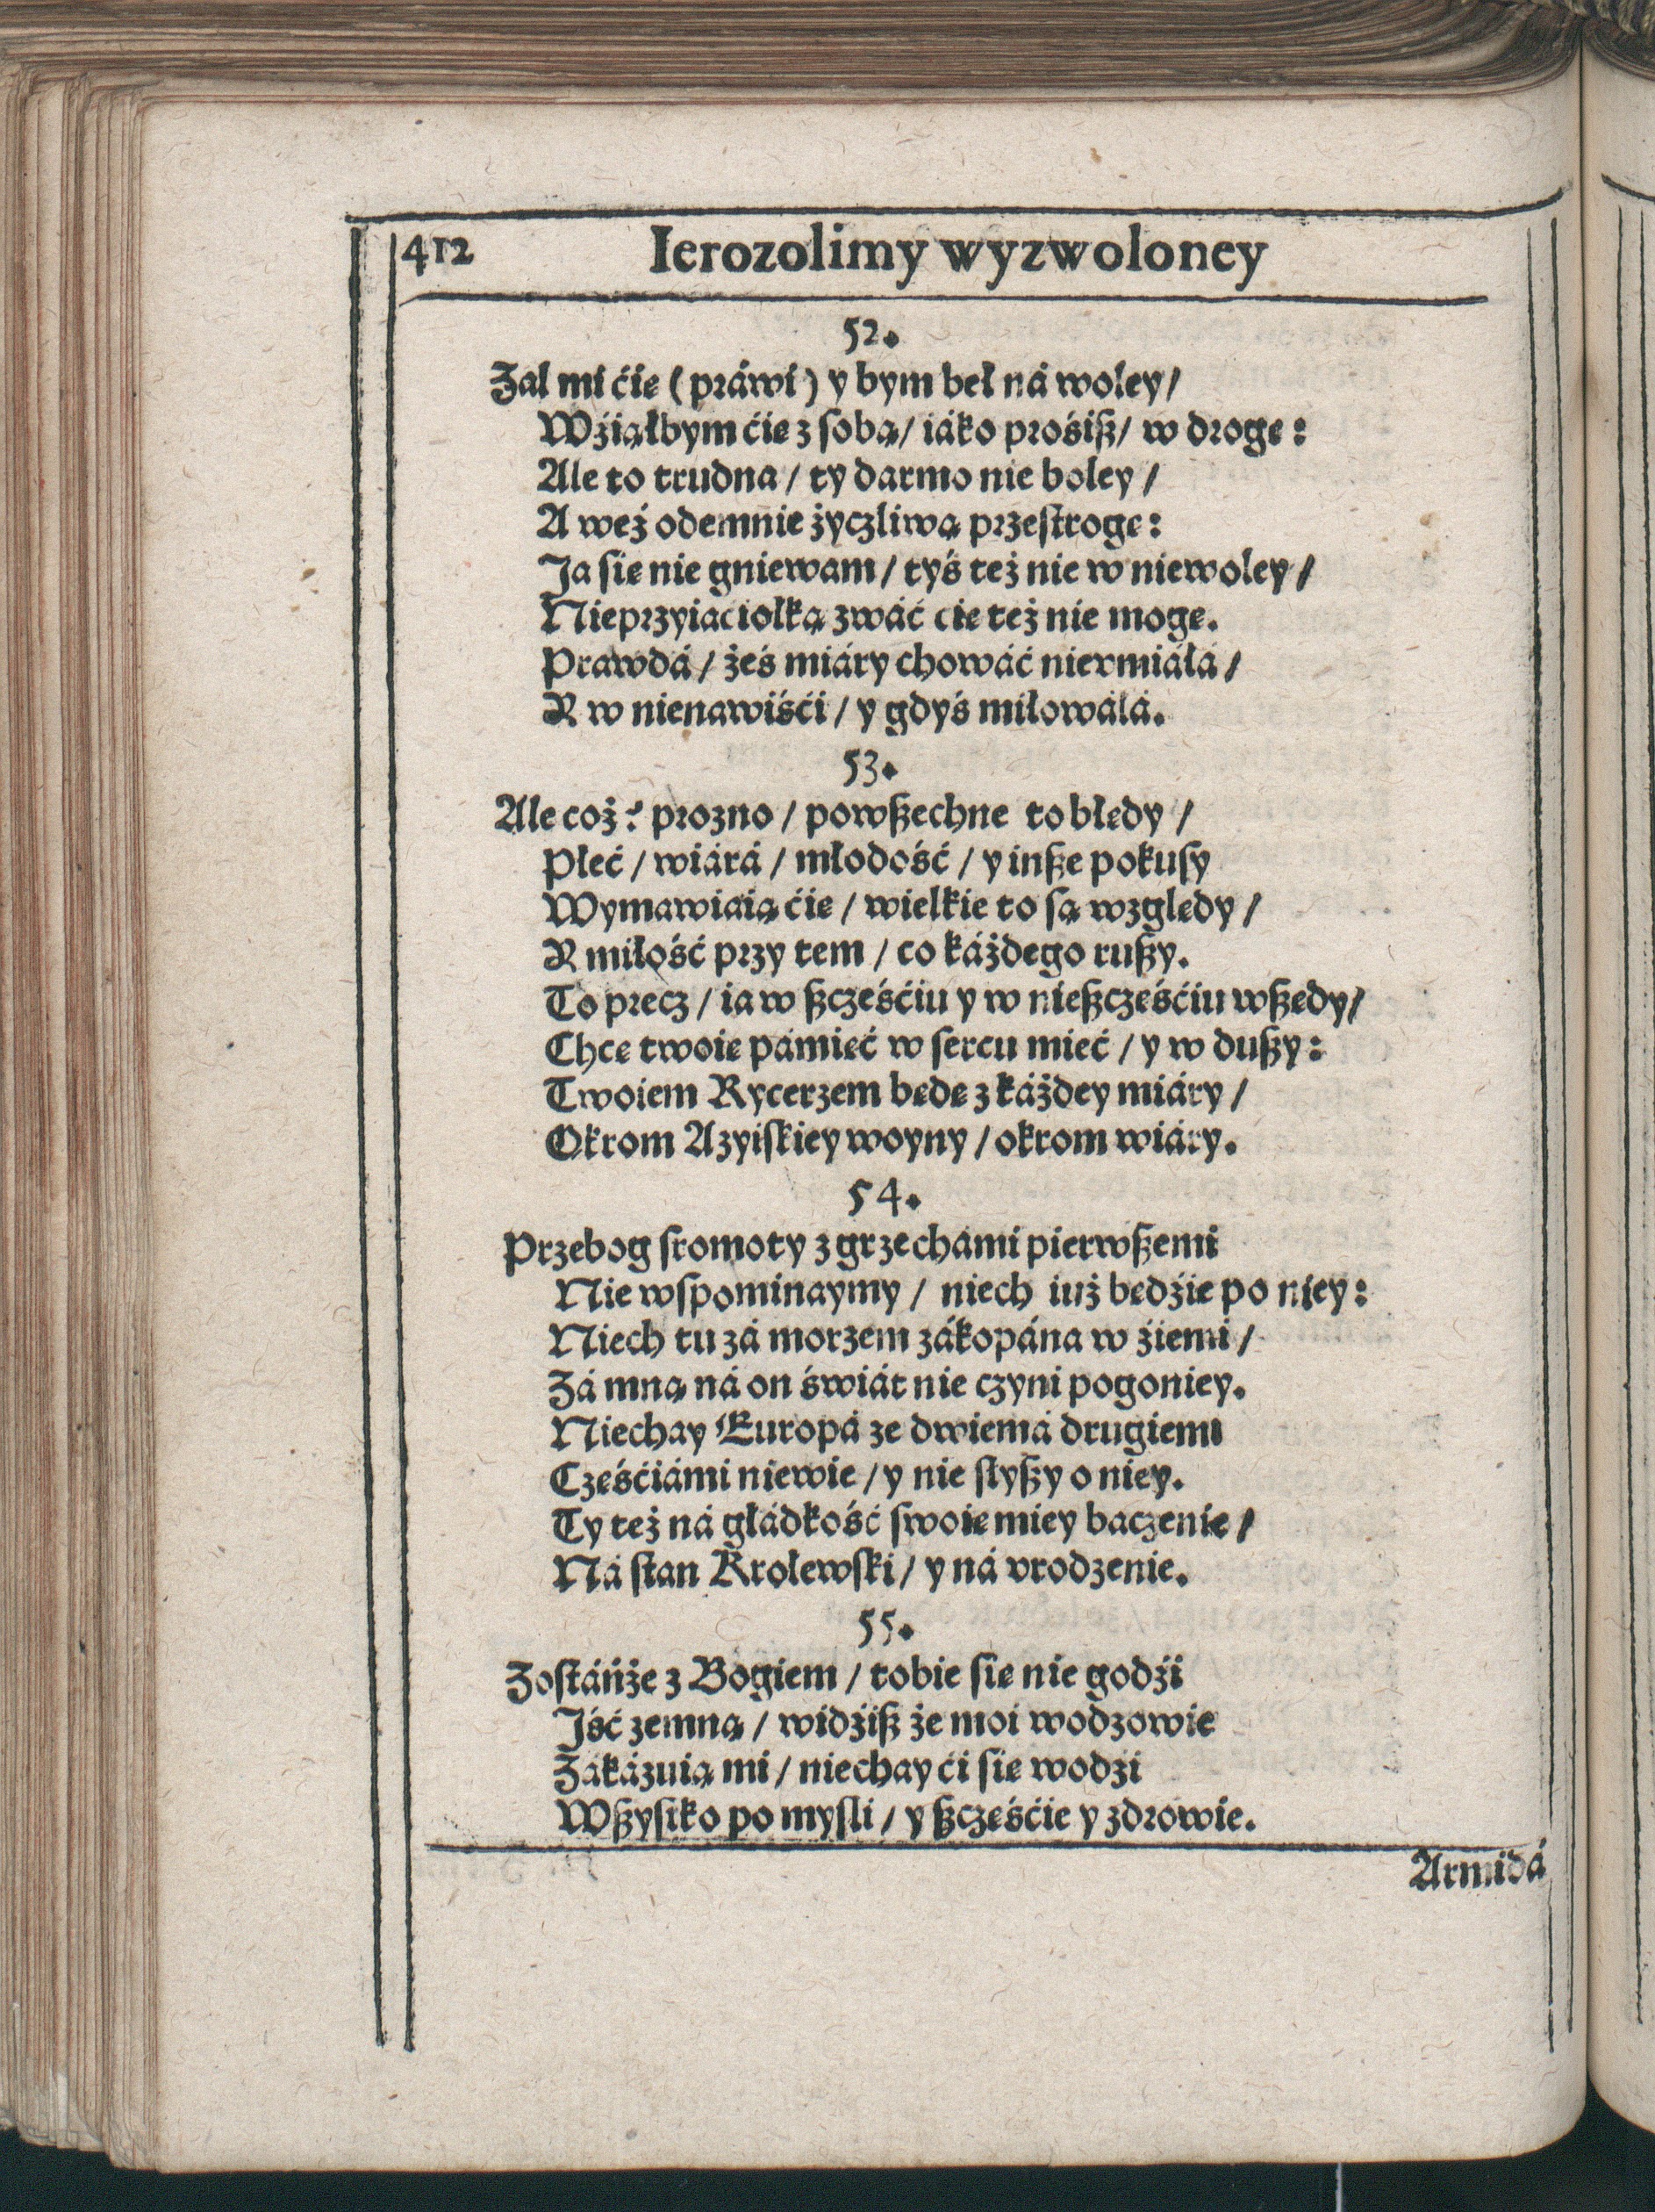 412 Ierozolimy wyzwoloney
52.
Zal mi ćię (práwi) y bym beł ná woley/
Wźiąłbym ćię z sobą/ iáko prośiß/ w drogę:
Ale to trudna/ ty darmo nie boley/
A weź odemnie życzliwą przestrogę:
Ja się nie gniewam/ tyś też nie w niewoley/
Nieprzyiaciołką zwáć cię też nie mogę.
Prawdá/ żeś miáry chowáć nievmiáłá/
Y w nienawiśći/ y gdyś miłowáłá.
53.
Ale coż? prozno/ powßechne to błędy/
Płeć/ wiárá/ młodość/ y inße pokusy
Wymawiáią ćię/ wielkie to są względy/
Y miłość przy tem/ co káżdego rußy.
To precz/ ia w ßczęśćiu y w nießczęśćiu wßędy/
Chcę twoię pámięć w sercu mieć/ y w dußy:
Twoiem Rycerzem będę z káżdey miáry/
Okrom Azyiskiey woyny/ okrom wiáry.
54.
Przebog sromoty z grzechámi pierwßemi
Nie wspominaymy/ niech iuż będźie po niey:
Niech tu zá morzem zákopána w źiemi/
Zá mną ná on świát nie czyni pogoniey.
Niechay Europá ze dwiemá drugiemi
Częśćiámi niewie/ y nie słyßy o niey.
Ty też ná głádkość swoię miey baczenie/
Ná stan Krolewski/ y ná vrodzenie.
55.
Zostáńże z Bogiem/ tobie się nie godźi
Jść zemną/ widźiß że moi wodzowie
Zákázuią mi/ niechay ći się wodzi
Wßystko po myśli/ y ßczęśćie y zdrowie.
Armidá